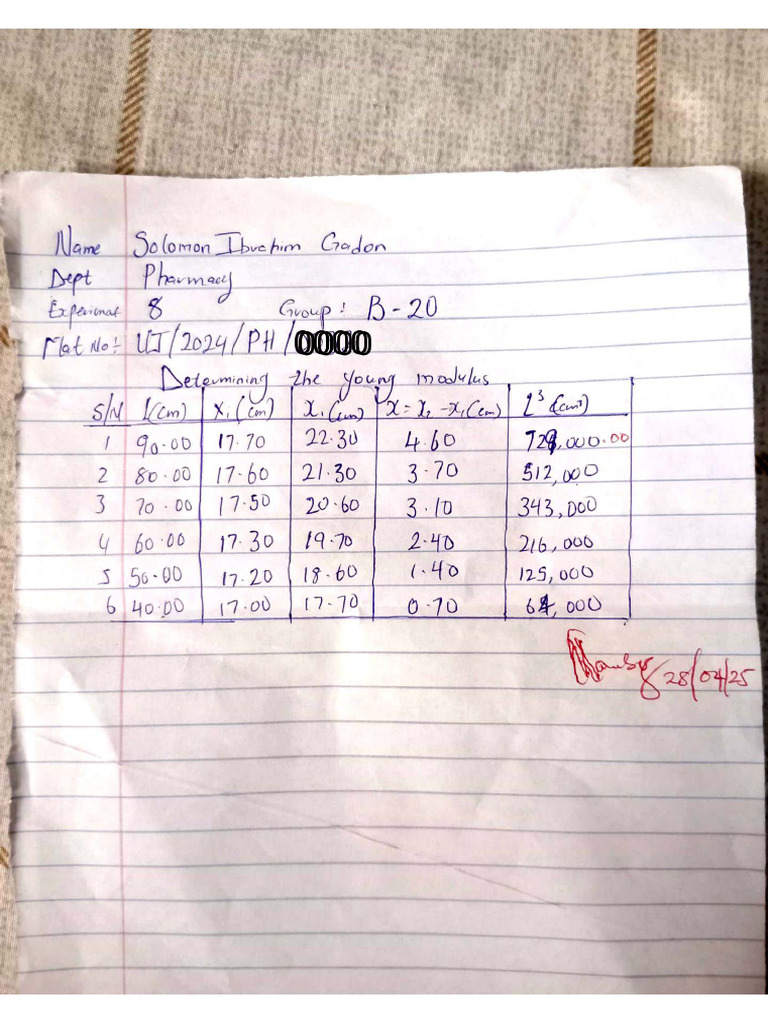 Name Solomon Ibrahim Gadon
Dept Pharmacy
Experiment 8 Group: B-20
Mat No:- UJ/2024/PH/0000
Determining the young modulus
S/N l(cm) X₁(cm) X₁(cm) X=X₂-X₁(cm) L³(cm³)
1 90.00 17.70 22.30 4.60 729,000.00
2 80.00 17.60 21.30 3.70 512,000
3 70.00 17.50 20.60 3.10 343,000
4 60.00 17.30 19.70 2.40 216,000
5 50.00 17.20 18.60 1.40 125,000
6 40.00 17.00 17.70 0.70 64,000
28/04/25